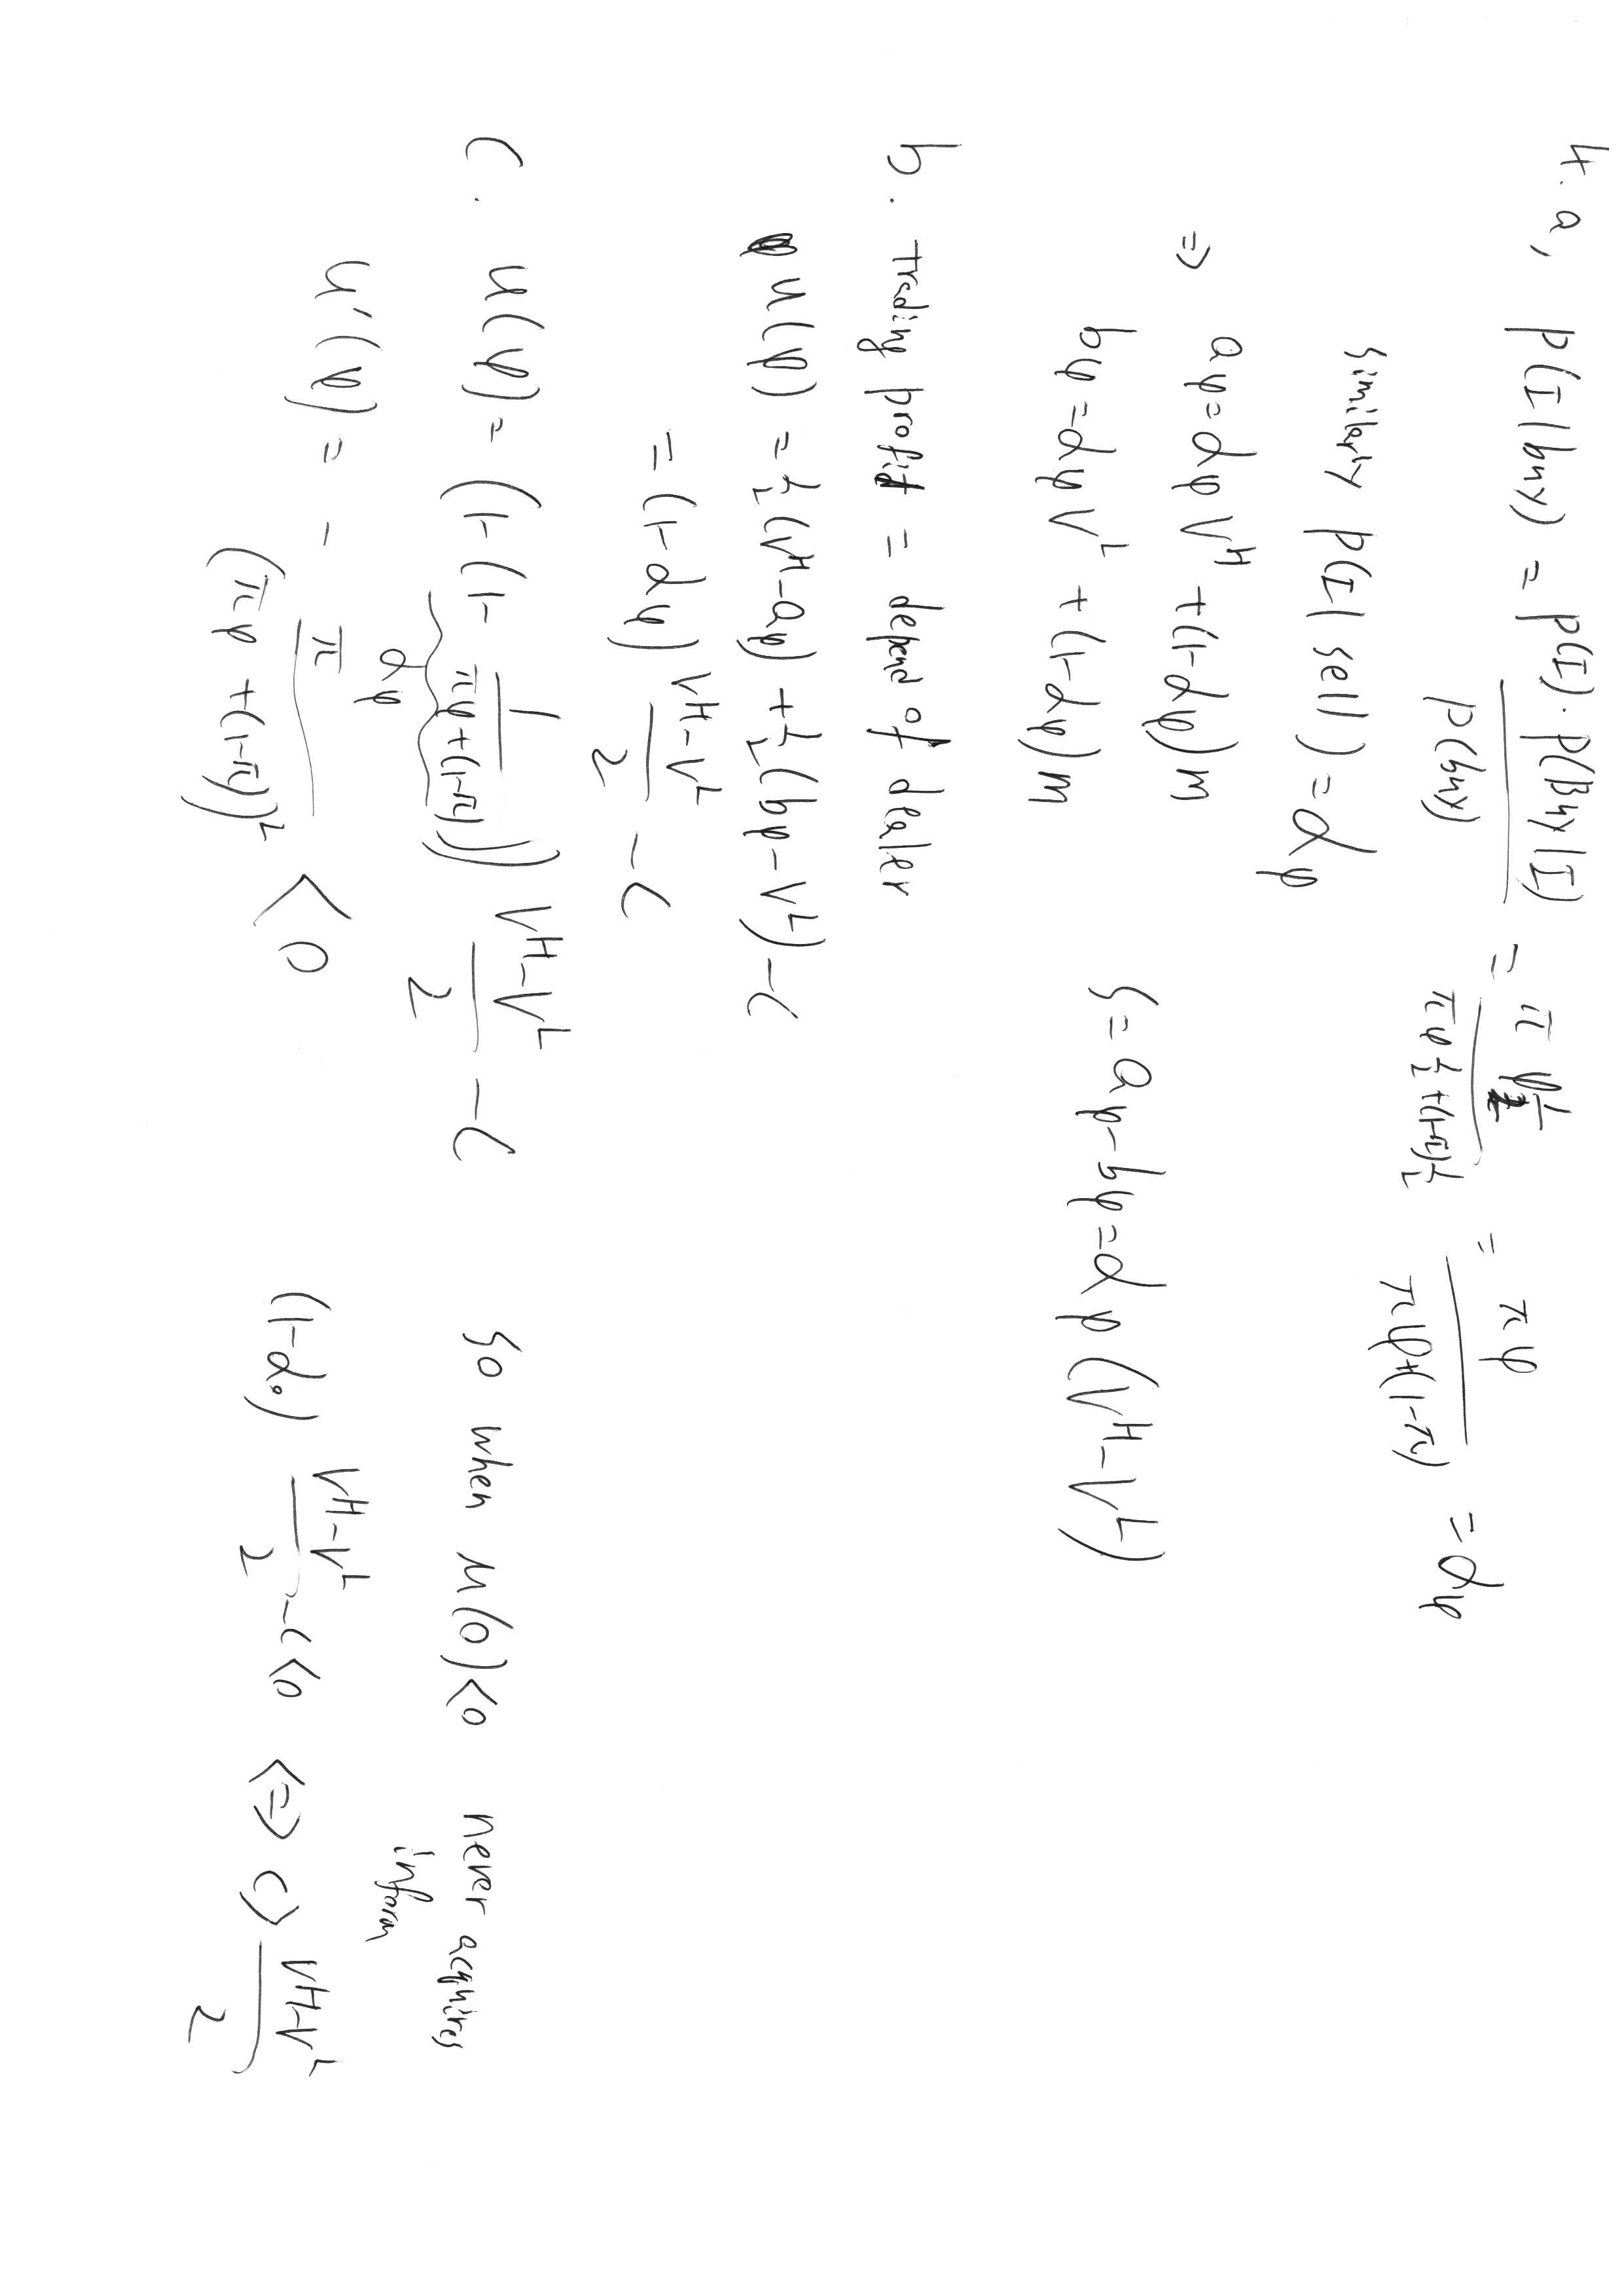 4. a, P(I|buy) = P(I)·P(Buy|I) / P(buy) = π φ ½ / (πφ½+(1-π)½) = πφ / (πφ+(1-π)) = αφ
similarly P(I|sell) = αφ
⇒ aφ = αφ V^H + (1-αφ)m
bφ = αφ V^L + (1-αφ)m
S = aφ-bφ = αφ (V^H-V^L)
b. trading profit = depend of dealer
u(φ) = ½(V^H-aφ) + ½(bφ-V^L) - C
= (1-αφ) (V^H-V^L)/2 - C
C. u(φ) = (1-(1- 1/(πφ+(1-π)))) (V^H-V^L)/2 - C
αφ
u'(φ) = - π/(πφ+(1-π))² < 0
So when u(0)<0 never acquires
inform
(1-α₀) (V^H-V^L)/2 - C<0 <=> C> (V^H-V^L)/2